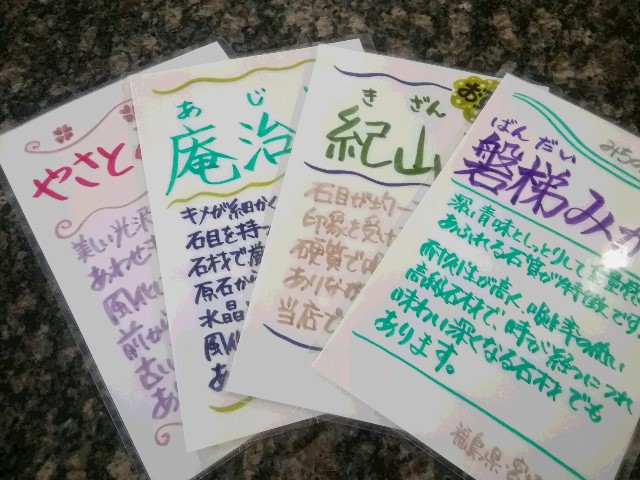 やさと
美しい光沢
あわせ
風化
前か
古い
あ
あ じ
庵治
キメが細かく
石目を持っ
石材で
原石から
水晶
風化
あ
き ざん
紀山
お
石目が均一
印象を受け
硬質で
ありなが
当店で
ばん だい
みち
磐梯み
深い青味としっとりして
あふれる石質が特徴です
耐久性が高く、吸水率の低い
高級石材で、時が経つにつれ
味わい深くなる石材でも
あります。
福島県・宮